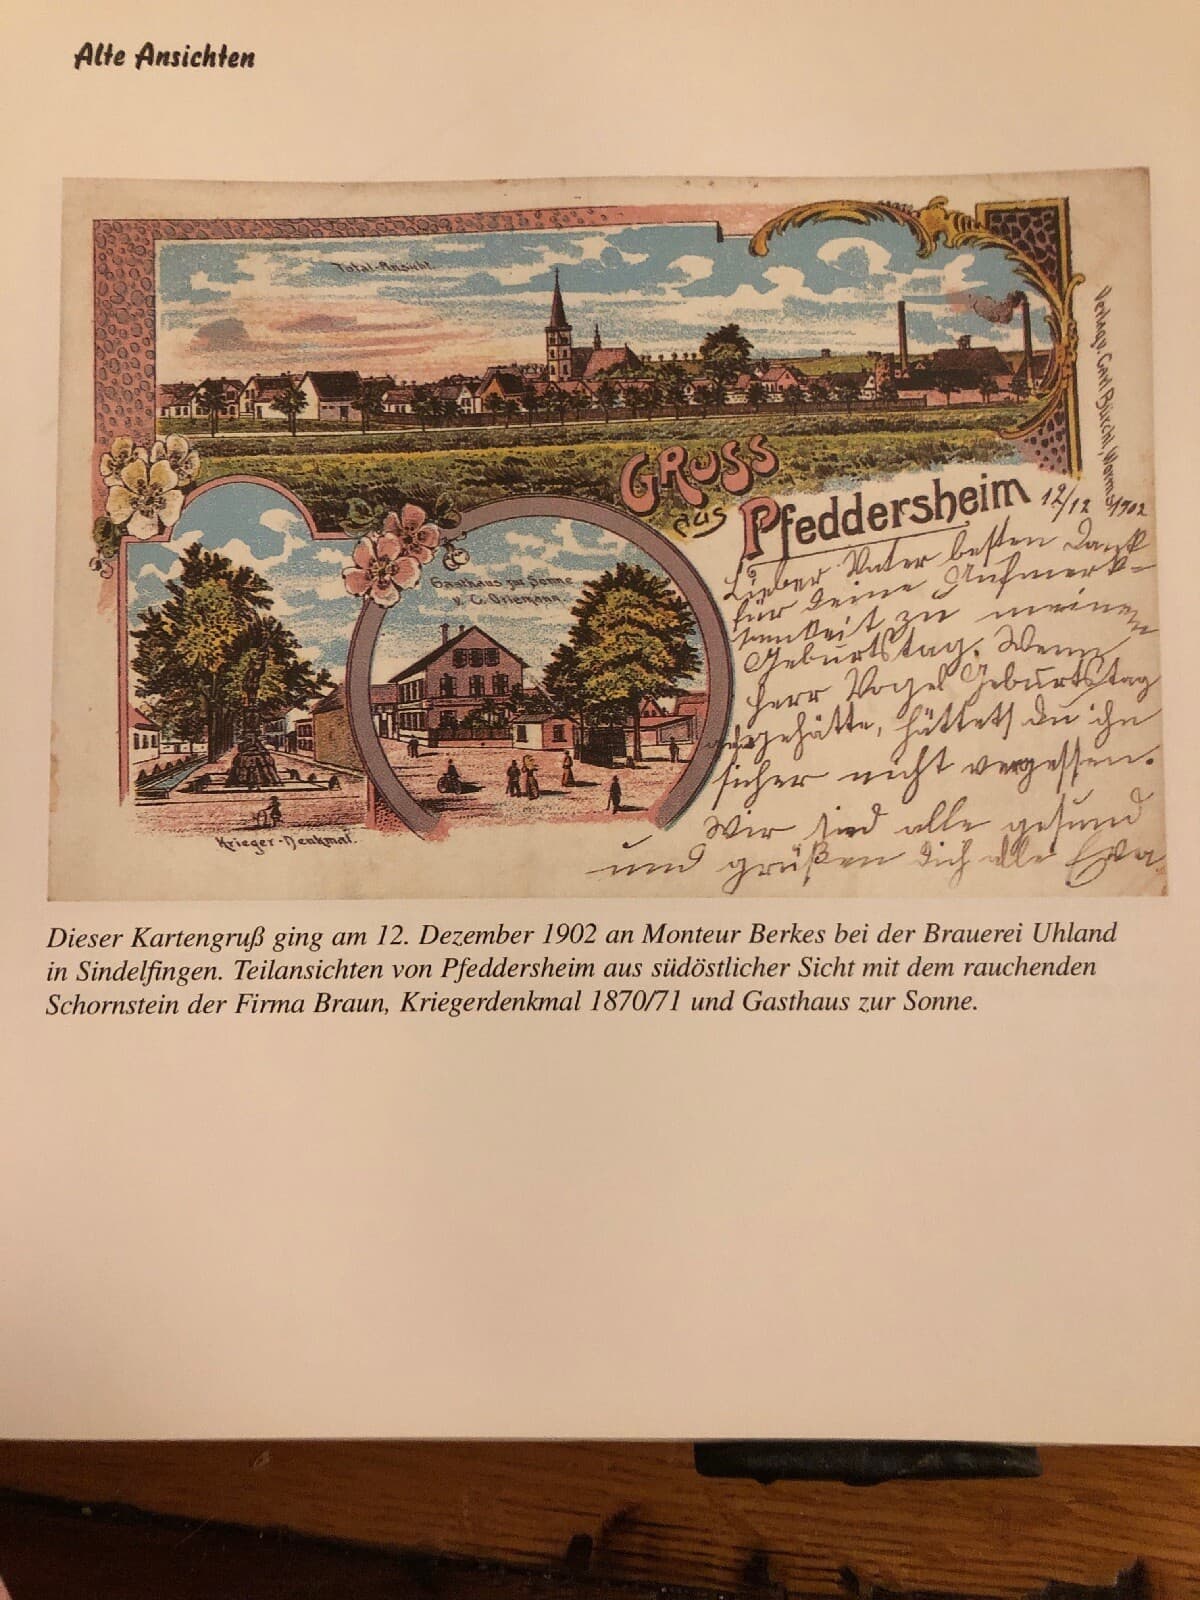 Alte Ansichten
Total-Ansicht.
GRUSS
aus Pfeddersheim
Verlag v. Carl Worms
12/12 1902
Gasthaus zur Sonne
v. C.
Krieger-Denkmal.
Lieber Vater besten Dank
für deine Aufmerk-
samkeit zu meinem
Geburtstag. Wenn
Herr Vogel Geburtstag
gehätte, hättest du ihn
sicher nicht vergessen.
Wir sind alle gesund
und grüßen dich alle Eva
Dieser Kartengruß ging am 12. Dezember 1902 an Monteur Berkes bei der Brauerei Uhland
in Sindelfingen. Teilansichten von Pfeddersheim aus südöstlicher Sicht mit dem rauchenden
Schornstein der Firma Braun, Kriegerdenkmal 1870/71 und Gasthaus zur Sonne.